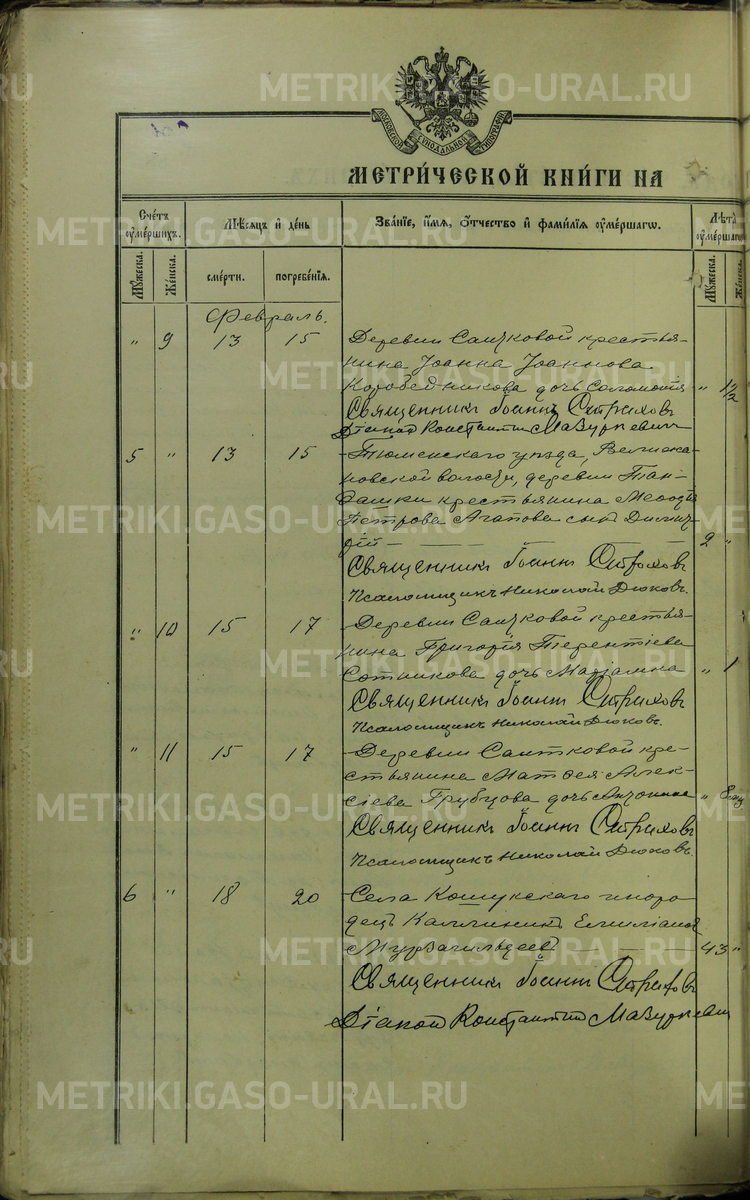 МОСКОВСКОЙ СѴНОДАЛЬНОЙ ТИПОГРАФІИ
МЕТРИ́ЧЕСКОЙ КНИ́ГИ НА
Сче́тъ ᲂу҆ме́ршихъ.
Мѣ́сяцъ и҆ де́нь
Зва́нїе, и҆́мя, ѻ҆́тчество и҆ фами́лїя ᲂу҆ме́ршагѡ.
Лѣ́та ᲂу҆ме́ршагѡ
Му́жеска.
Же́нска.
сме́рти.
погребе́нїя.
Му́жеска.
Же́нска.
Февраль.
" 9 13 15 Деревни Саитковой крестья-
нина Іоанна Іоаннова
Коробейникова дочь Соломонія " 1 1/2
Священникъ Іоаннъ Стриховъ
Діаконъ Константинъ Мазуркевичъ
5 " 13 15 Тюменскаго уѣзда, Велижа-
новской волости, деревни Тан-
дашки крестьянина
Петрова Агапова сынъ Дими-
рій 2 "
Священникъ Іоаннъ Стриховъ
Псаломщикъ Николай Дюковъ.
" 10 15 17 Деревни Саитковой крестья-
нина Григорія Терентіева
Сотникова дочь Маріамна " 1
Священникъ Іоаннъ Стриховъ
Псаломщикъ Николай Дюковъ.
" 11 15 17 Деревни Саитковой кре-
стьянина Матѳея Алек-
сіева Грубцова дочь Антонина " 8 мц
Священникъ Іоаннъ Стриховъ
Псаломщикъ Николай Дюковъ.
6 " 18 20 Села Кошукскаго иноро-
децъ Каллиникъ Емиліановъ
Мурзагильдеевъ 43 "
Священникъ Іоаннъ Стриховъ
Діаконъ Константинъ Мазуркевичъ
METRIKI.GASO-URAL.RU